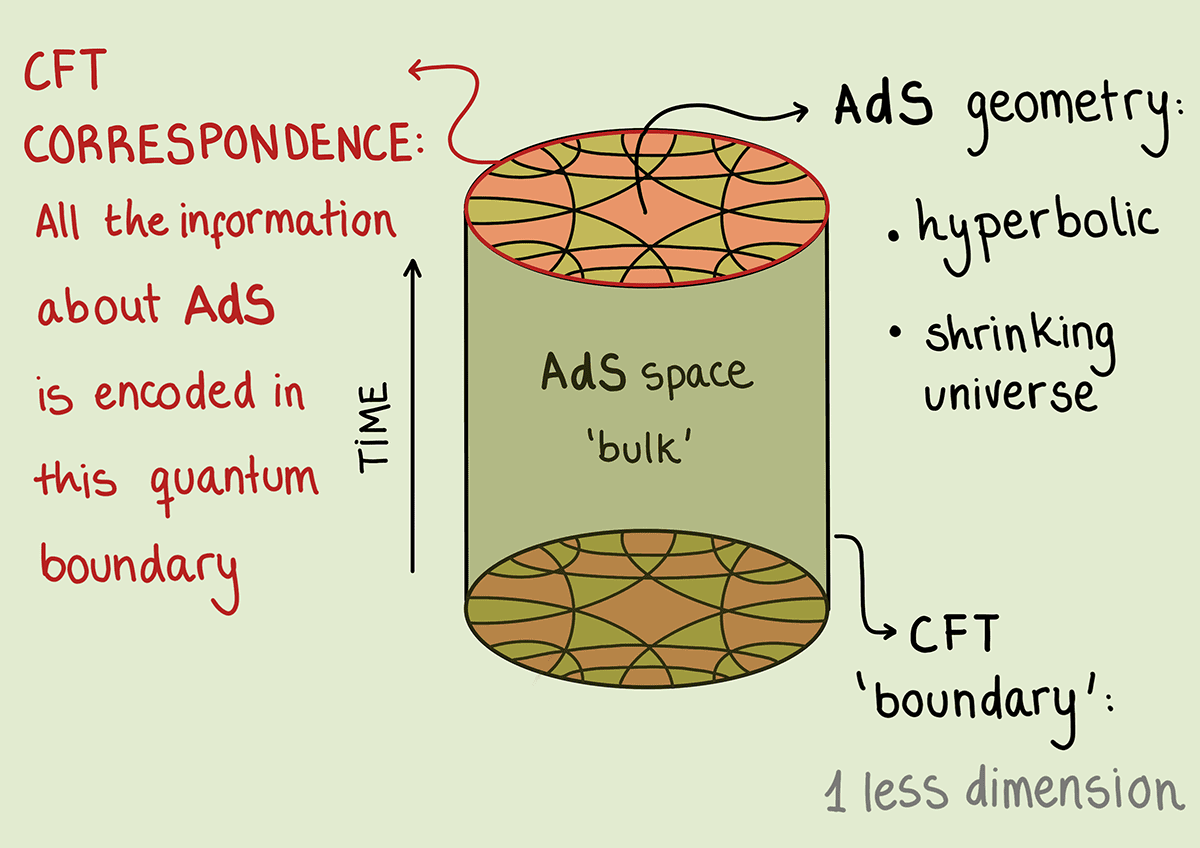 CFT
CORRESPONDENCE:
All the information
about AdS
is encoded in
this quantum
boundary
TIME
AdS space
'bulk'
AdS geometry:
• hyperbolic
• shrinking
universe
CFT
'boundary':
1 less dimension